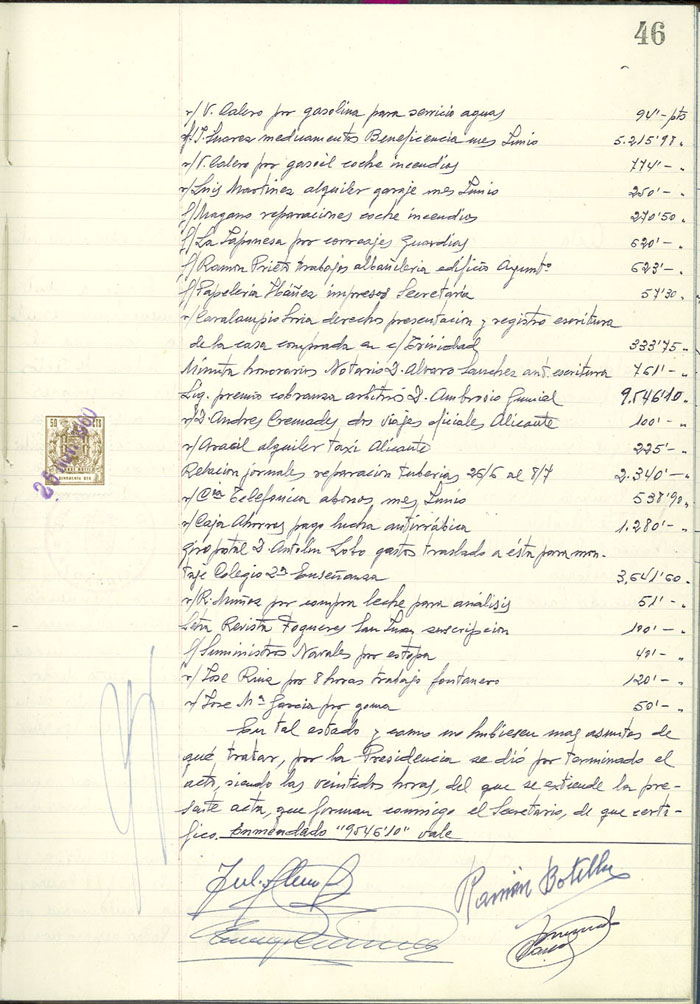 46
r/V. Calero por gasolina para servicio aguas 94'- pts
f/. J. Suarez medicamentos Beneficencia mes Junio 5.215'98 "
r/V. Calero por gasoil coche incendios 774'- "
r/Luis Martinez alquiler garaje mes Junio 250'- "
f/Magano reparaciones coche incendios 270'50 "
f/La Japonesa por correajes Guardias 620'- "
f/Ramón Prieto trabajos albañileria edificio Ayuntº 623'- "
f/Papelería Ibáñez impresos Secretaría 57'30 "
r/Caralampio Soria derechos presentación y registro escritura
de la casa comprada en c/Trinidad 333'75 "
Minuta honorarios Notario D. Alvaro Sanchez ant. escritura 761'- "
Liq. premio cobranza arbitrios D. Ambrosio 9.546'10 "
r/D. Andres Cremades, dos viajes oficiales Alicante 100'- "
r/Aracil alquiler taxi Alicante 225'- "
Relacion jornales reparacion tuberias 25/6 al 8/7 2.340'- "
r/Cia Telefonica abonos mes Junio 538'90 "
r/Caja Ahorros pago lucha antirrábica 1.280'- "
Giro postal D. Antolin Lobo gastos traslado a ésta para mon-
taje Colegio 2ª Enseñanza 3,641'60 "
r/R. Muñoz por compra leche para análisis 51'- "
Letra Revista Fogueres San Juan suscripcion 100'- "
f/Suministros Navales por estopa 40'- "
r/Jose Ruiz por 8 horas trabajo fontanero 120'- "
r/Jose Mª Garcia por goma 50'- "
En tal estado y como no hubiesen mas asuntos de
qué tratar, por la Presidencia se dió por terminado el
acto, siendo las veintidos horas, del que se extiende la pre-
sente acta, que forman conmigo el Secretario, de que certi-
fico. Enmendado "9546'10" vale
Ramón Botella
50